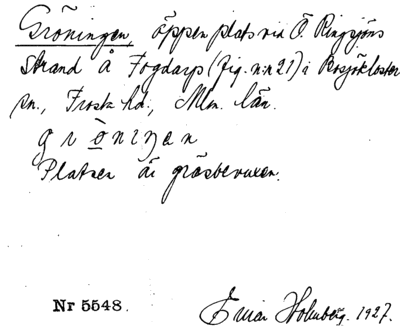 Gröningen, öppen plats vid Ö. Ringsjöns
strand å Fogdarp (fig. n:r 21) i Bosjökloster
sn., Frosta hd., Mlm. län.
g r ò n ı ŋ ə n
Platsen är gräsbevuxen.
Nr 5548. Einar Holmberg. 1927.